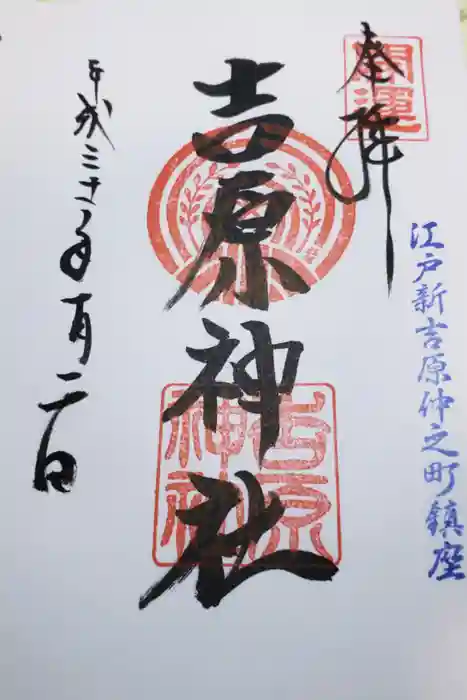 江戸新吉原仲之町鎮座
奉拝
開運
吉原神社
吉原神社
平成三十年 月二日